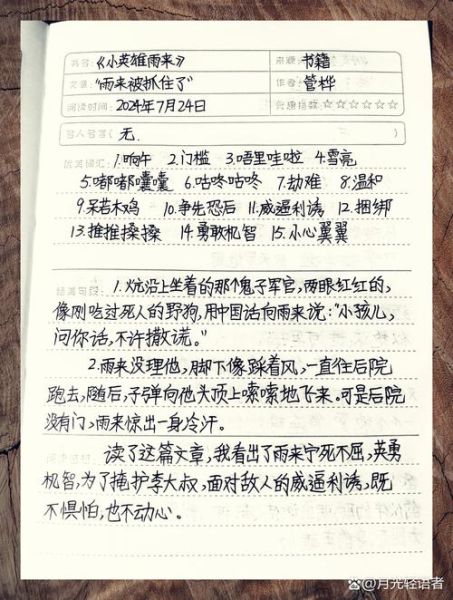 书名:《小英雄雨来》 来源: 书籍
文章: "雨来被抓住了" 作者: 管桦
阅读时间: 2024年7月24日 推荐指数:☆☆☆☆☆☆
名人名言( 无. )
优美词汇: 1.晌午 2.门槛 3.唔里哇啦 4.雪亮
5.嘟嘟囔囔 6.咕咚咕咚 7.劫难 8.温和
9.呆若木鸡 10.争先恐后 11.威逼利诱 12.捆绑
13.推推搡搡 14.勇敢机智 15.小心翼翼
精美句段: 1.炕沿上坐着的那个鬼子军官,两眼红红的,
像刚吃过死人的野狗,用中国话向雨来说:"小孩儿,
问你话,不许撒谎。"
2.雨来没理他,脚下像踩着风,一直往后院
跑去,随后,子弹向他头顶上嗖嗖地飞来。可是后院
没有门,雨来惊出一身冷汗。
读了这篇文章,我看出了雨来宁死不屈,英勇
机智,为了掩护李大叔,面对敌人的威逼利诱,既
不惧怕,也不动心。
@月光轻语者